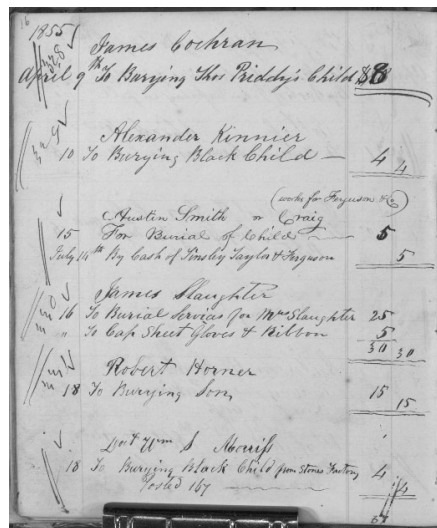 16
1855
James Cochran
328
April 9th To Burying Thos Priddy's Child $8
Alexander Kinnier
329
10 To Burying Black Child — 4 4
(works for Ferguson &Co)
Austin Smith or Craig
15 For Burial of Child 5
July 14th By Cash of Tinsley Taylor & Ferguson 5
James Slaughter
330
16 To Burial Services for Mrs Slaughter 25
" To Cap Sheet Gloves & Ribbon 5
30 30
Robert Horner
18 To Burying Son 15
15
Wm S Morriss
18 To Burying Black Child from Stones Factory 4
Posted 167 4